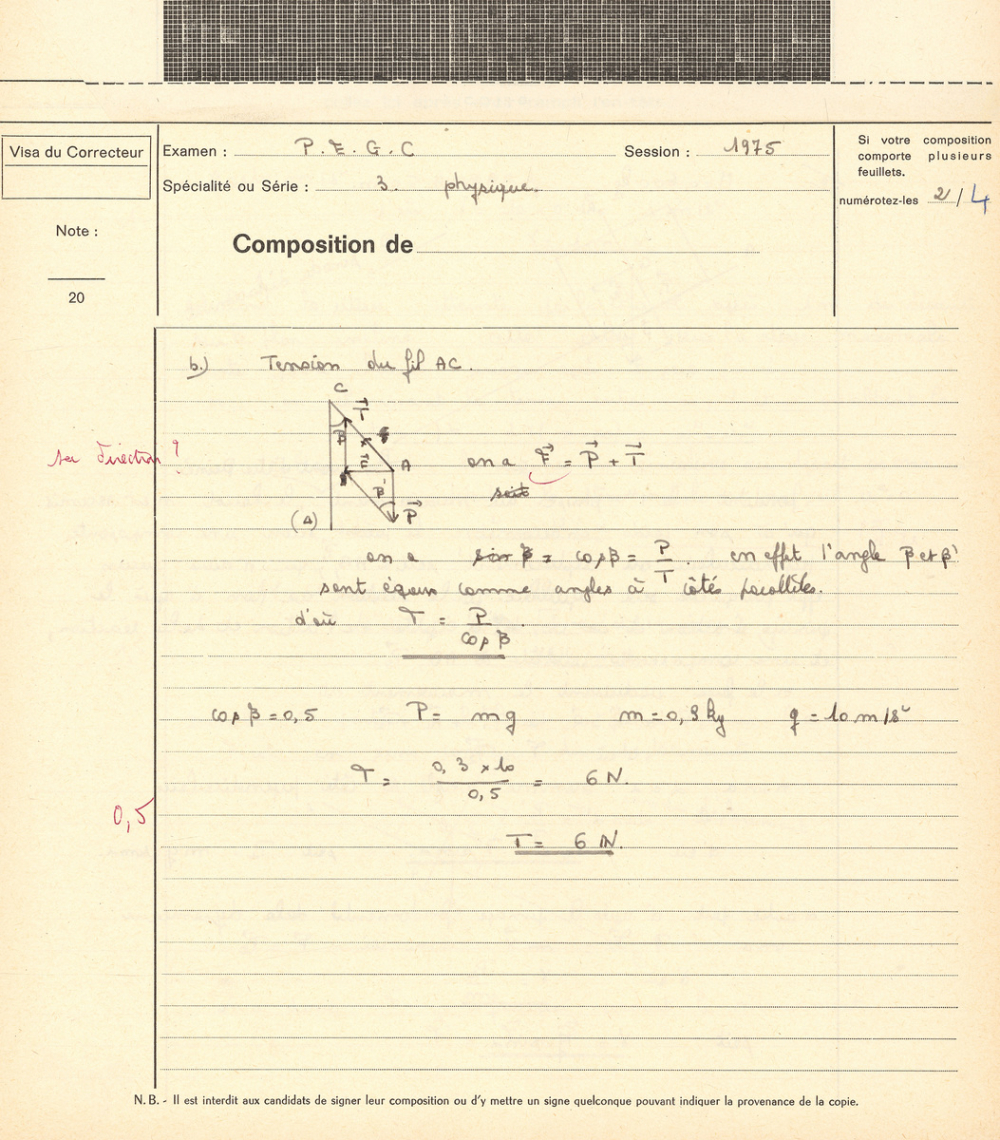 Visa du Correcteur
Examen : P.E.G.C
Session : 1975
Si votre composition
comporte plusieurs
feuillets.
numérotez-les 2/4
Spécialité ou Série : 3. physique.
Note :
20
Composition de
b.) Tension du fil AC.
C
T
β
A
sa direction ?
on a F = P + T
soit
β'
P
(Δ)
on a sin β = cos β = P/T . en effet l'angle β et β'
sont égaux comme angles à côtés parallèles.
d'où T = P/cos β .
cos β = 0,5 P = mg m = 0,3 kg g = 10 m/s²
T = 0,3 x 10 / 0,5 = 6 N.
0,5
T = 6 N.
N. B. - Il est interdit aux candidats de signer leur composition ou d'y mettre un signe quelconque pouvant indiquer la provenance de la copie.